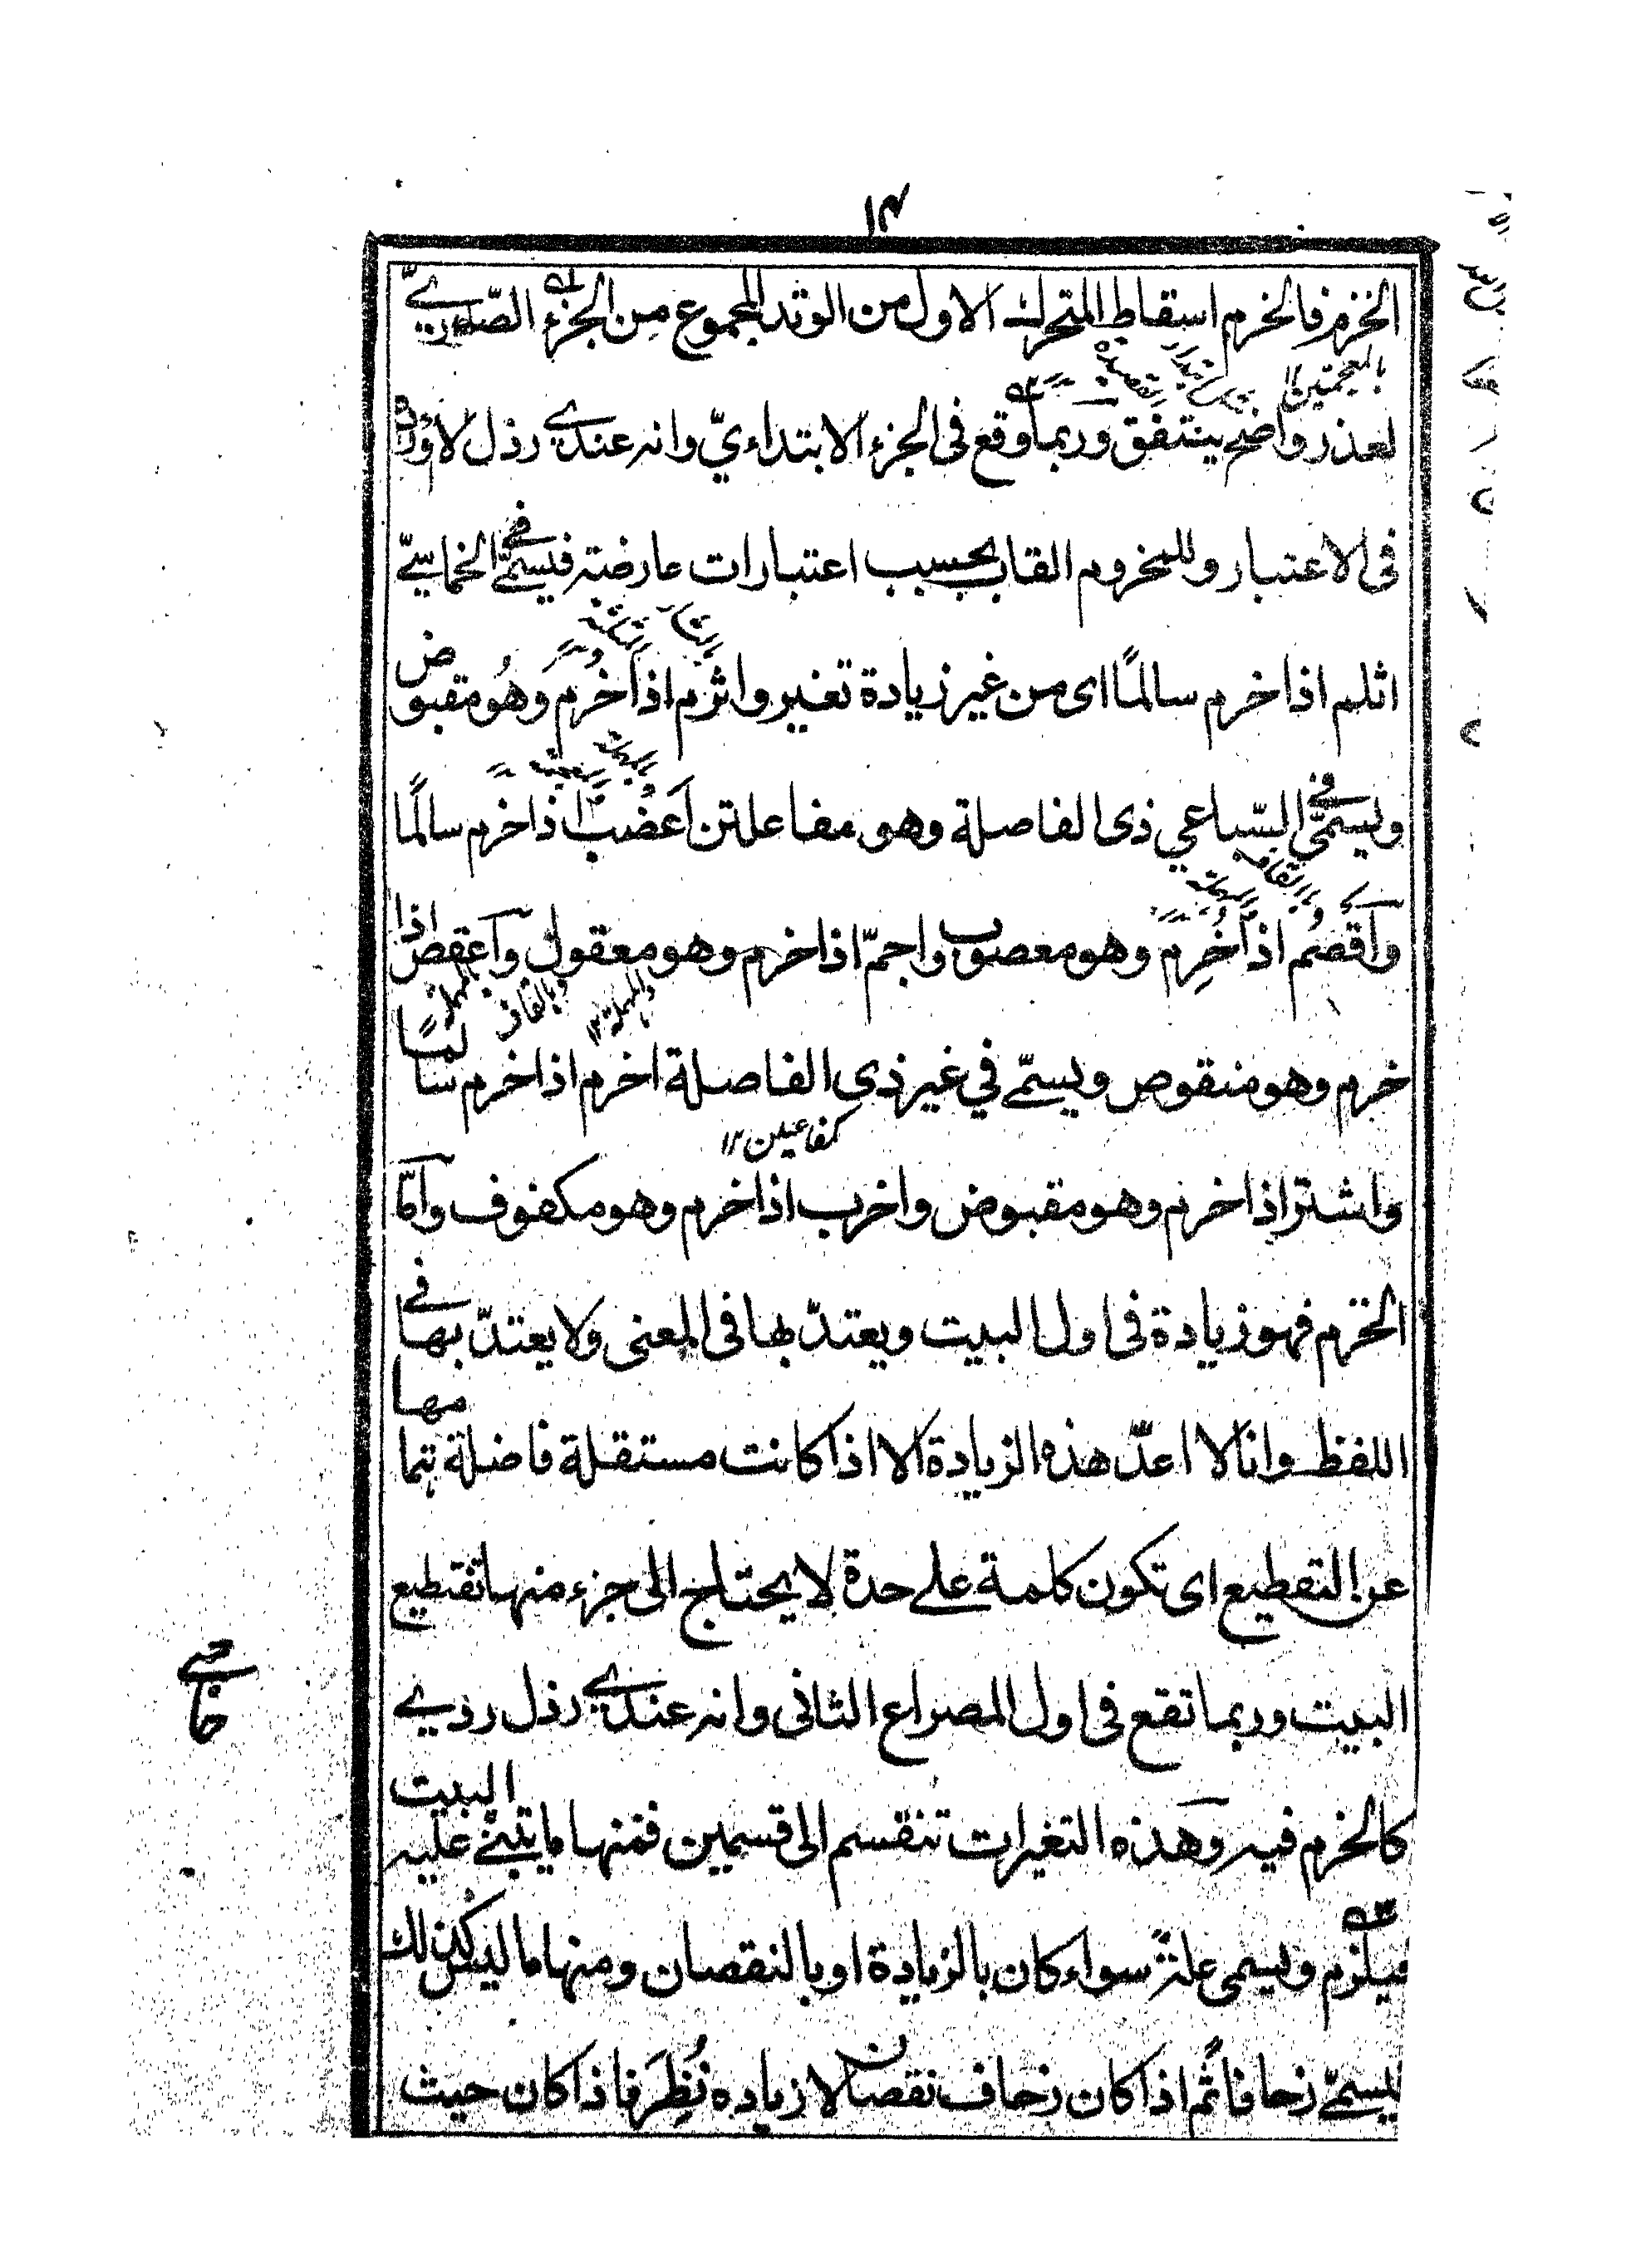 ١٤
الخزم فالخرم اسقاط المتحرك الاول من الوتد المجموع من الجزء الصّدريّ
بالمعجمتين ١٢
لعذر واضح يتفق وربما وقع فى الجزء الابتداءيّ وانه عندي رذل لا
فى الاعتبار وللمخروم القاب بحسب اعتبارات عارضته فيسمّى فى الخماسيّ
اثلم اذا خرم سالمًا اى من غير زيادة تغير واثرم اذا خُرم وهُو مقبوض
ويسمّى فى السّباعي ذى الفاصلة وهو مفاعلتن اَعضب اذا خرم سالمًا
واَقصم اذا خُرِم وهو معصوب واجمّ اذا خرم وهو معقول واَعقص اذا
خرم وهو منقوص ويسمّى في غير ذي الفاصلة اخرم اذا خرم سالمًا
كمفاعيلن ١٢
واشتر اذا خرم وهو مقبوض واخرب اذا خرم وهو مكفوف وامّا
الخزم فهو زيادة فى اول البيت ويعتدّ بها فى المعنى ولا يعتدّ بها فى
اللفظ وانا لا اعدّ هذه الزيادة الا اذا كانت مستقلة فاضلة بتمامها
عن التقطيع اى تكون كلمة على حدة لا يحتاج الى جزء منها تقطيع
البيت وربما تقع فى اول المصراع الثانى وانه عندي رذل ردي
كالخرم فيه وهذه التغيرات تنقسم الى قسمين فمنها ما يتبنى عليه البيت
فيلزم ويسمى علةً سواء كان بالزيادة او بالنقصان ومنها ما ليس كذلك
يسمّى زحافا ثُم اذا كان زحاف نقصان لا زياده نُظِرَ فاذا كان حيث